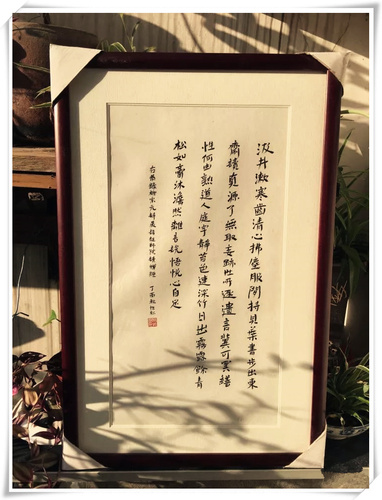 汲井漱寒齒清心拂塵服閒持貝葉書步出東
齋讀真源了無取妄跡世所逐遺言冀可冥繕
性何由熟道人庭宇靜苔色連深竹日出霧露餘青
松如膏沐澹然離言說悟悅心自足
右恭錄柳宗元晨詣超師院讀禪經